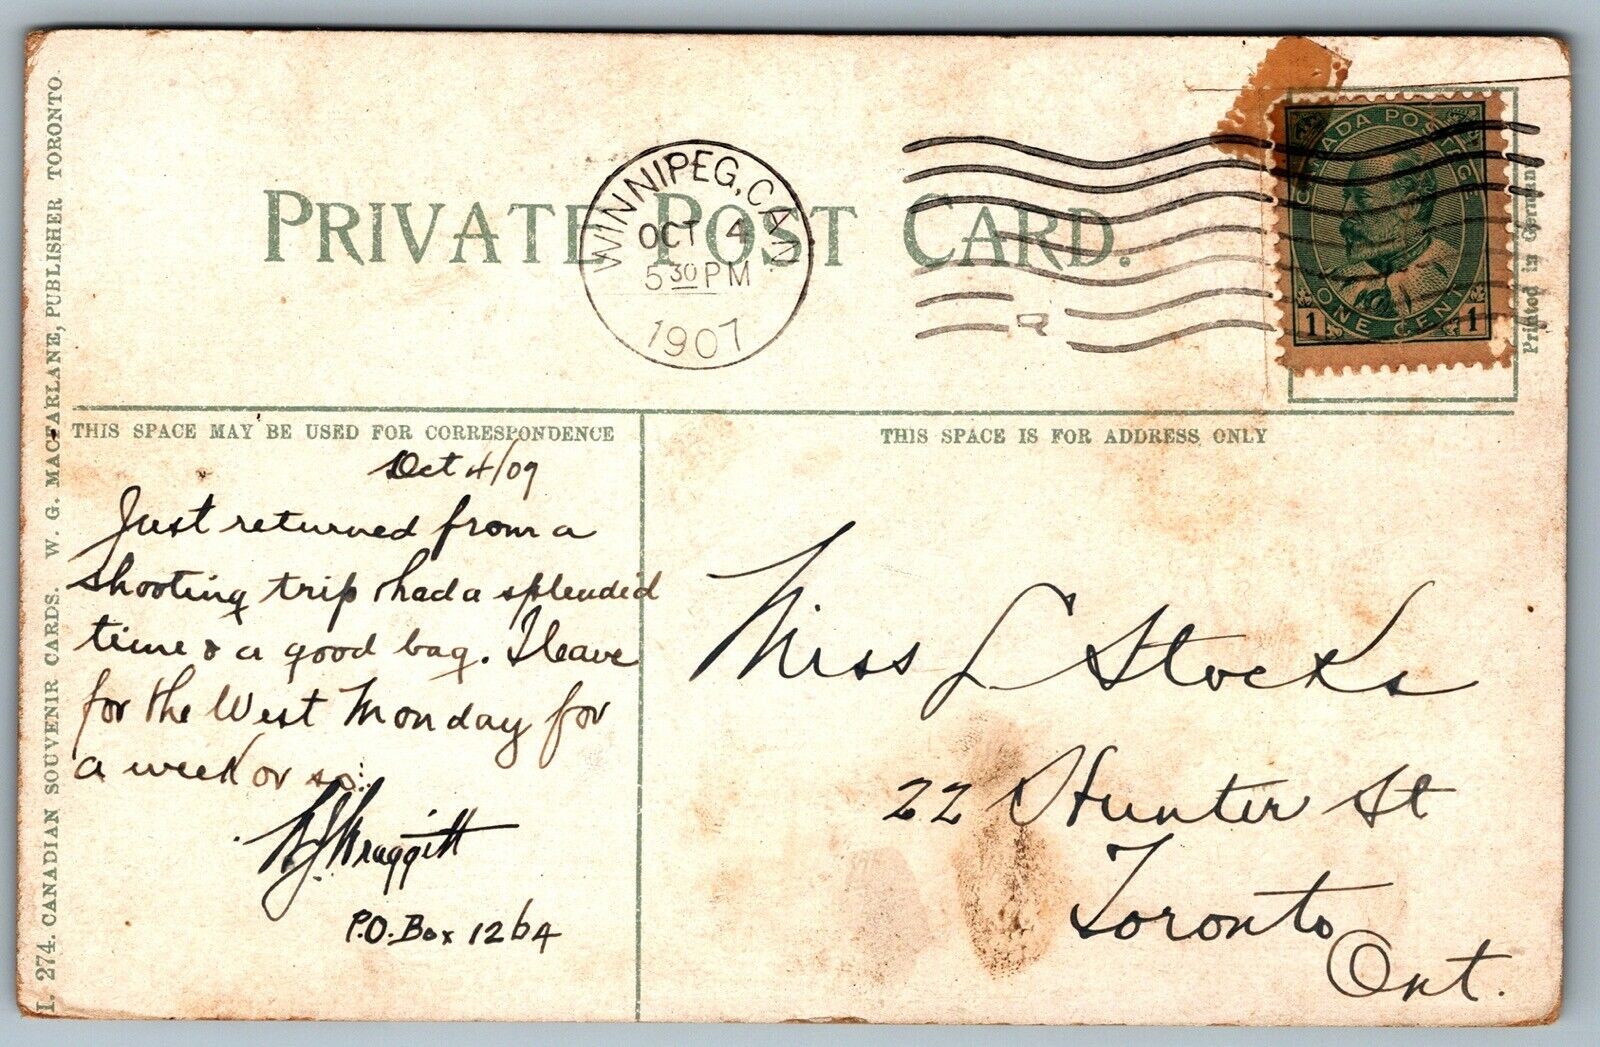 PRIVATE POST CARD.
WINNIPEG, CAN.
OCT 4
5 30 PM
1907
CANADA POSTAGE
1 ONE CENT 1
Printed in Germany
I. 274. CANADIAN SOUVENIR CARDS. W. G. MACFARLANE, PUBLISHER TORONTO.
THIS SPACE MAY BE USED FOR CORRESPONDENCE
THIS SPACE IS FOR ADDRESS ONLY
Oct 4/07
Just returned from a
shooting trip had a splendid
time & a good bag. I leave
for the West Monday for
a week or so.
P.O. Box 1264
Miss L Stocks
22 Hunter St
Toronto
Ont.